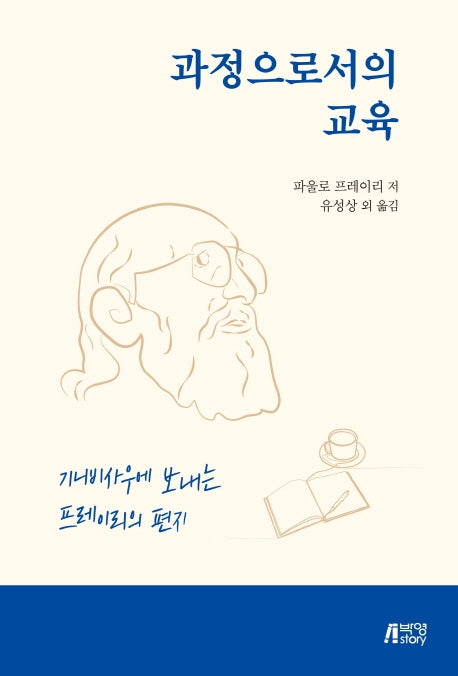 과정으로서의
교육
파울로 프레이리 저
유성상 외 옮김
기니비사우에 보내는
프레이리의 편지
박영
story